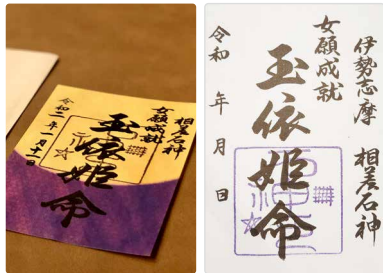 相差石神
女願成就
玉依姫命
令和二年一月十一日
伊勢志摩 相差石神
女願成就
玉依姫命
令和 年 月 日